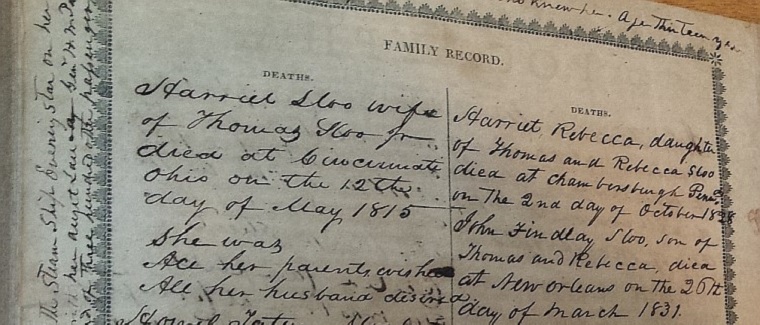 knew her. Age thirteen years
FAMILY RECORD.
DEATHS.
Harriet Sloo wife
of Thomas Sloo Jr
died at Cincinnati
Ohio on the 12th
day of May 1815
She was
All her parents wished
All her husband desired
DEATHS.
Harriet Rebecca, daughter
of Thomas and Rebecca Sloo
died at Chambersburgh Penn.
on the 2nd day of October 1828
John Findlay Sloo, son of
Thomas and Rebecca, died
at New Orleans on the 26th
day of March 1831.
the Steam Ship Evening Star on her